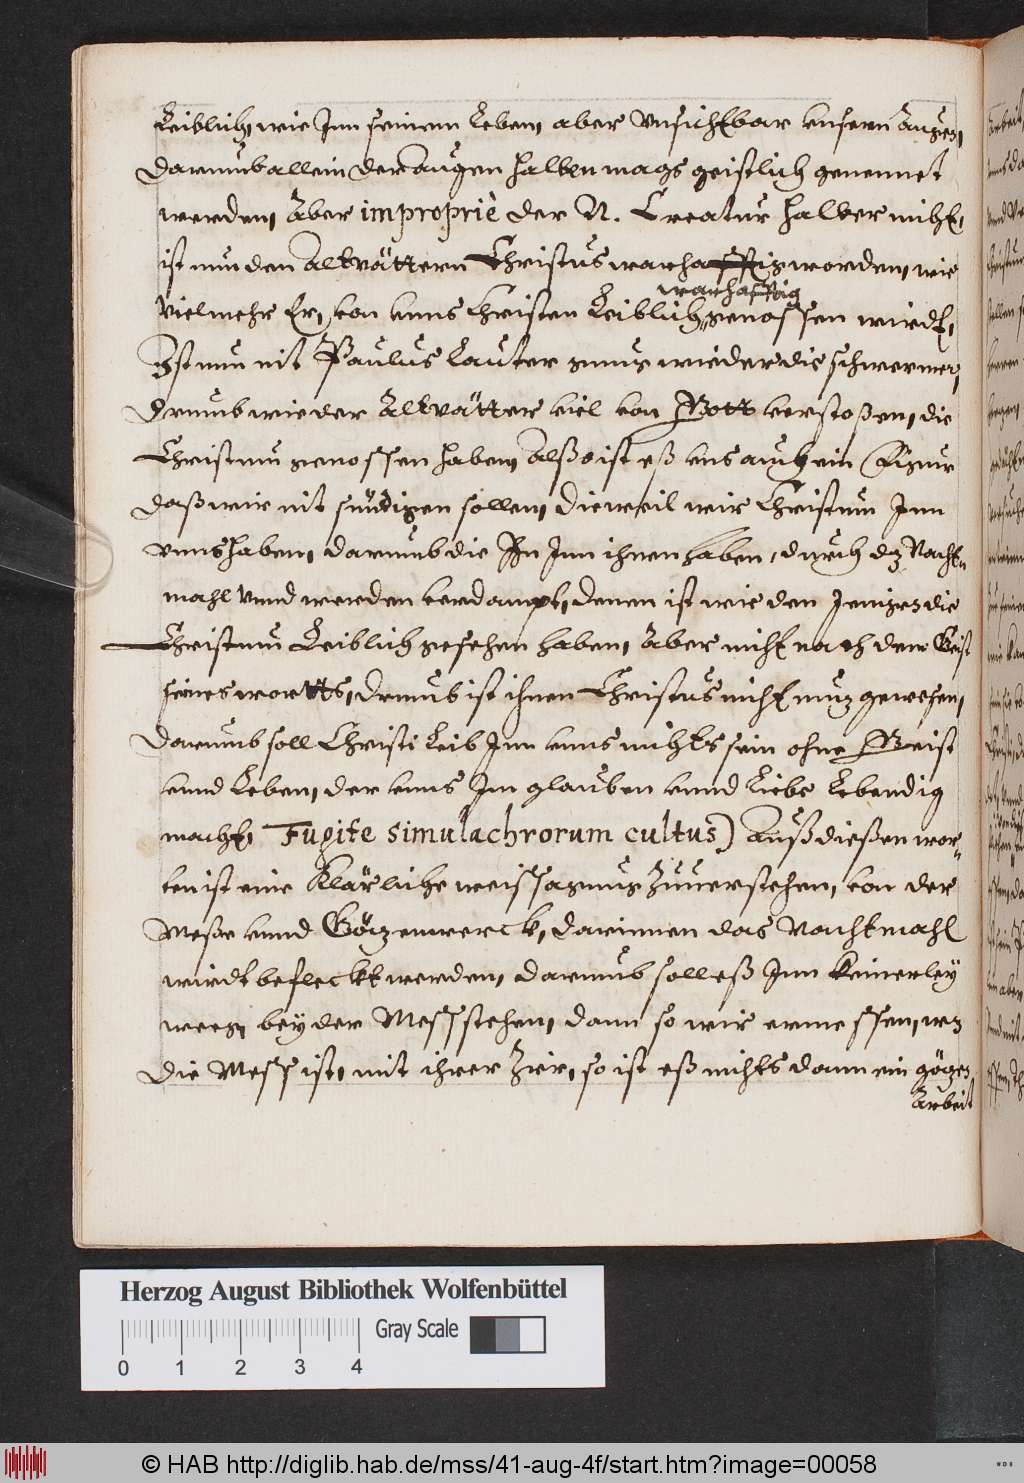 Leiblich, wie Inn seinem Leben, aber vnsichtbar vnsern Augen,
Darumb allein der augen halben mags geistlich genennet
werden, Aber impropriè der N. Creatur halber nicht,
ist nun den Altvättern Christus warhafftig worden, wie
warhafftig
vielmehr Er, von vnns Christen Leiblich genossen wirdt,
Ist nun nit Paulus Lauter gnug wieder die schwermer,
Drumb wie der Altvätter viel von Gott verstoßen, die
Christum genossen haben, Alßo ist eß vns auch ein Figur
daß wir nit sündigen sollen, Dieweil wir Christum Inn
vnns haben, darumb die Ihn Inn ihnen haben, durch dz Nacht
mahl vnnd werden verdampt, denen ist wie den Jenigen die
Christum Leiblich gesehen haben, Aber nicht nach dem Geist
seines wortts, Drumb ist ihnen Christus nicht nuz gewesen,
Darumb soll Christi Leib Inn vnns nichts sein ohne Geist
vnnd Leben, der vnns Im glauben vnnd Liebe Lebendig
macht, Fugite simulachrorum cultus) Auß dießen wor-
ten ist eine Klärliche weissagung Zuuerstehen, von der
Meße vnnd Götzenwerck, darinnen das Nachtmahl
wirdt befleckt werden, darumb soll eß Inn keinerley
weeg, bey der Mess stehen, dann so wir ermessen, wz
die Mess ist, mit ihrer Zier, so ist eß nichts dann ein götzen
Arbeit
Herzog August Bibliothek Wolfenbüttel
Gray Scale
0 1 2 3 4
© HAB http://diglib.hab.de/mss/41-aug-4f/start.htm?image=00058